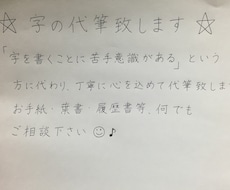 ☆ 字の代筆致します ☆
「字を書くことに苦手意識がある」という
方に代わり、丁寧に心を込めて代筆致しま
お手紙・葉書・履歴書等、何でも
ご相談下さい☺♪